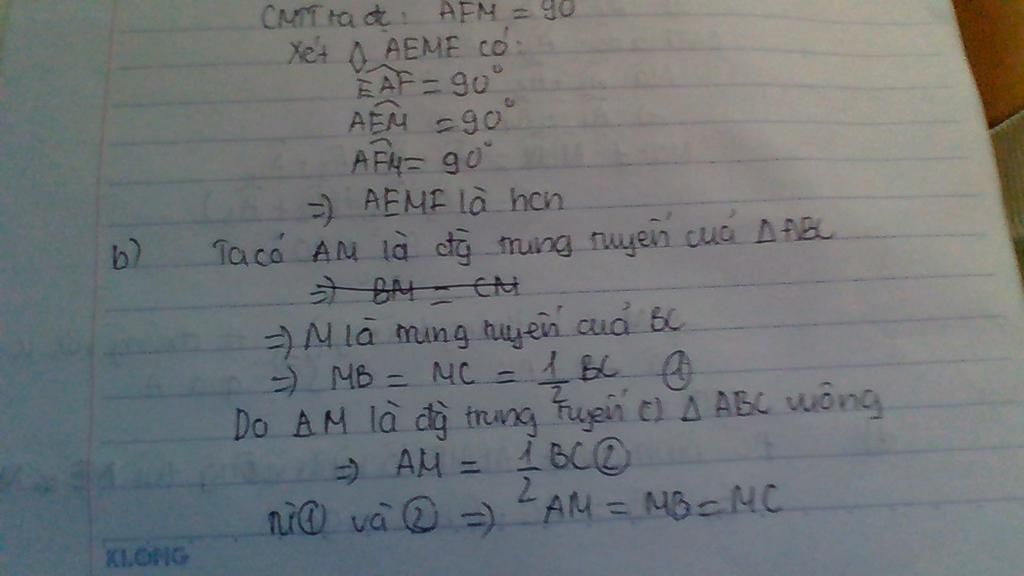 CMTT ta đc: AFM = 90
Xét Δ AEMF có:
EAF = 90°
AEM = 90°
AFM = 90°
=> AEMF là hcn
b) Ta có AM là đg trung tuyến của Δ ABC
=> BM = CM
=> M là trung tuyến của BC
=> MB = MC = 1/2 BC ①
Do AM là đg trung tuyến Δ ABC vuông
=> AM = 1/2 BC ②
từ ① và ② => AM = MB = MC
XLONG